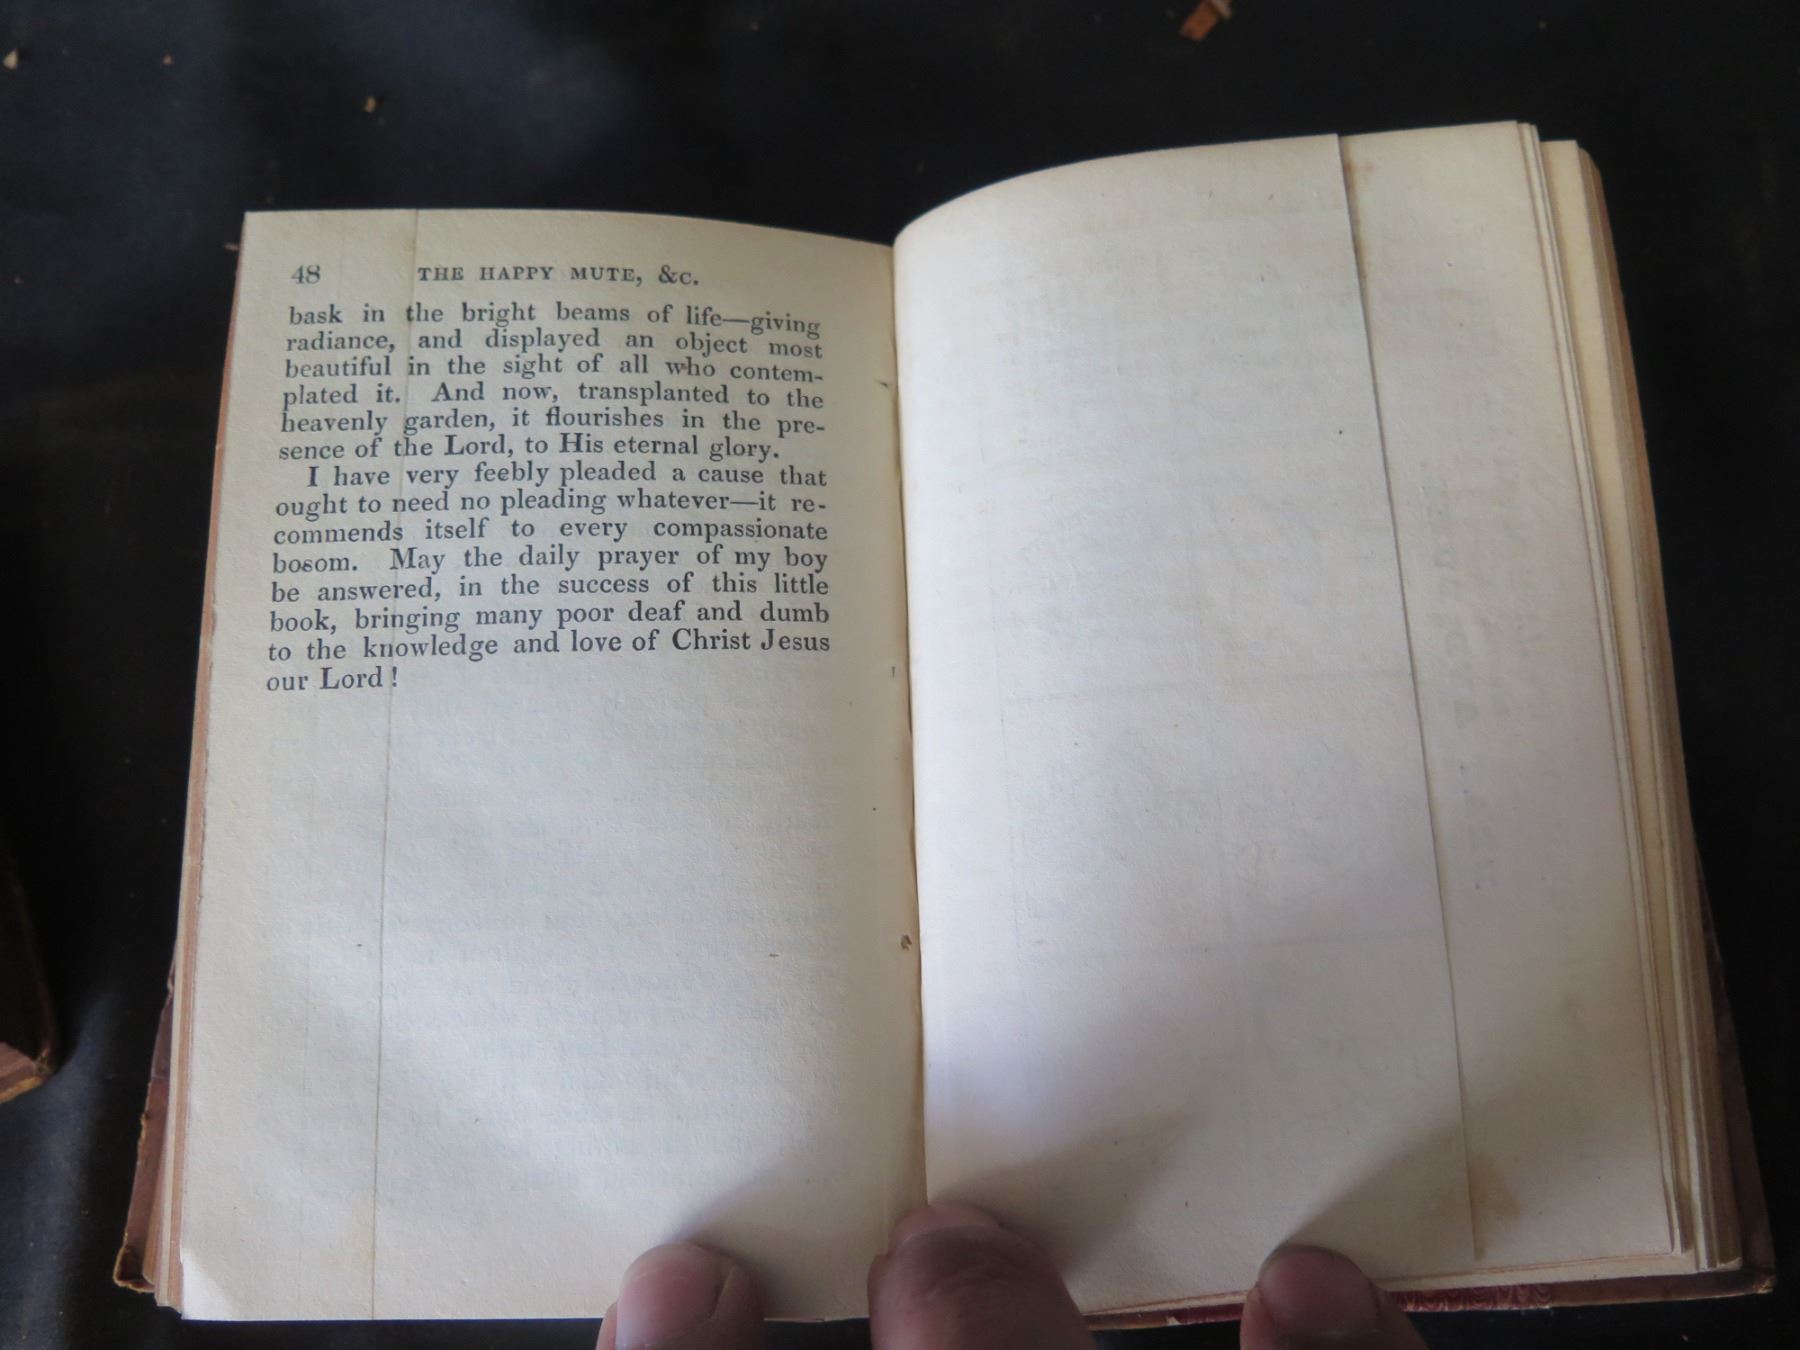 48 THE HAPPY MUTE, &c.
bask in the bright beams of life—giving
radiance, and displayed an object most
beautiful in the sight of all who contem-
plated it. And now, transplanted to the
heavenly garden, it flourishes in the pre-
sence of the Lord, to His eternal glory.
I have very feebly pleaded a cause that
ought to need no pleading whatever—it re-
commends itself to every compassionate
bosom. May the daily prayer of my boy
be answered, in the success of this little
book, bringing many poor deaf and dumb
to the knowledge and love of Christ Jesus
our Lord !